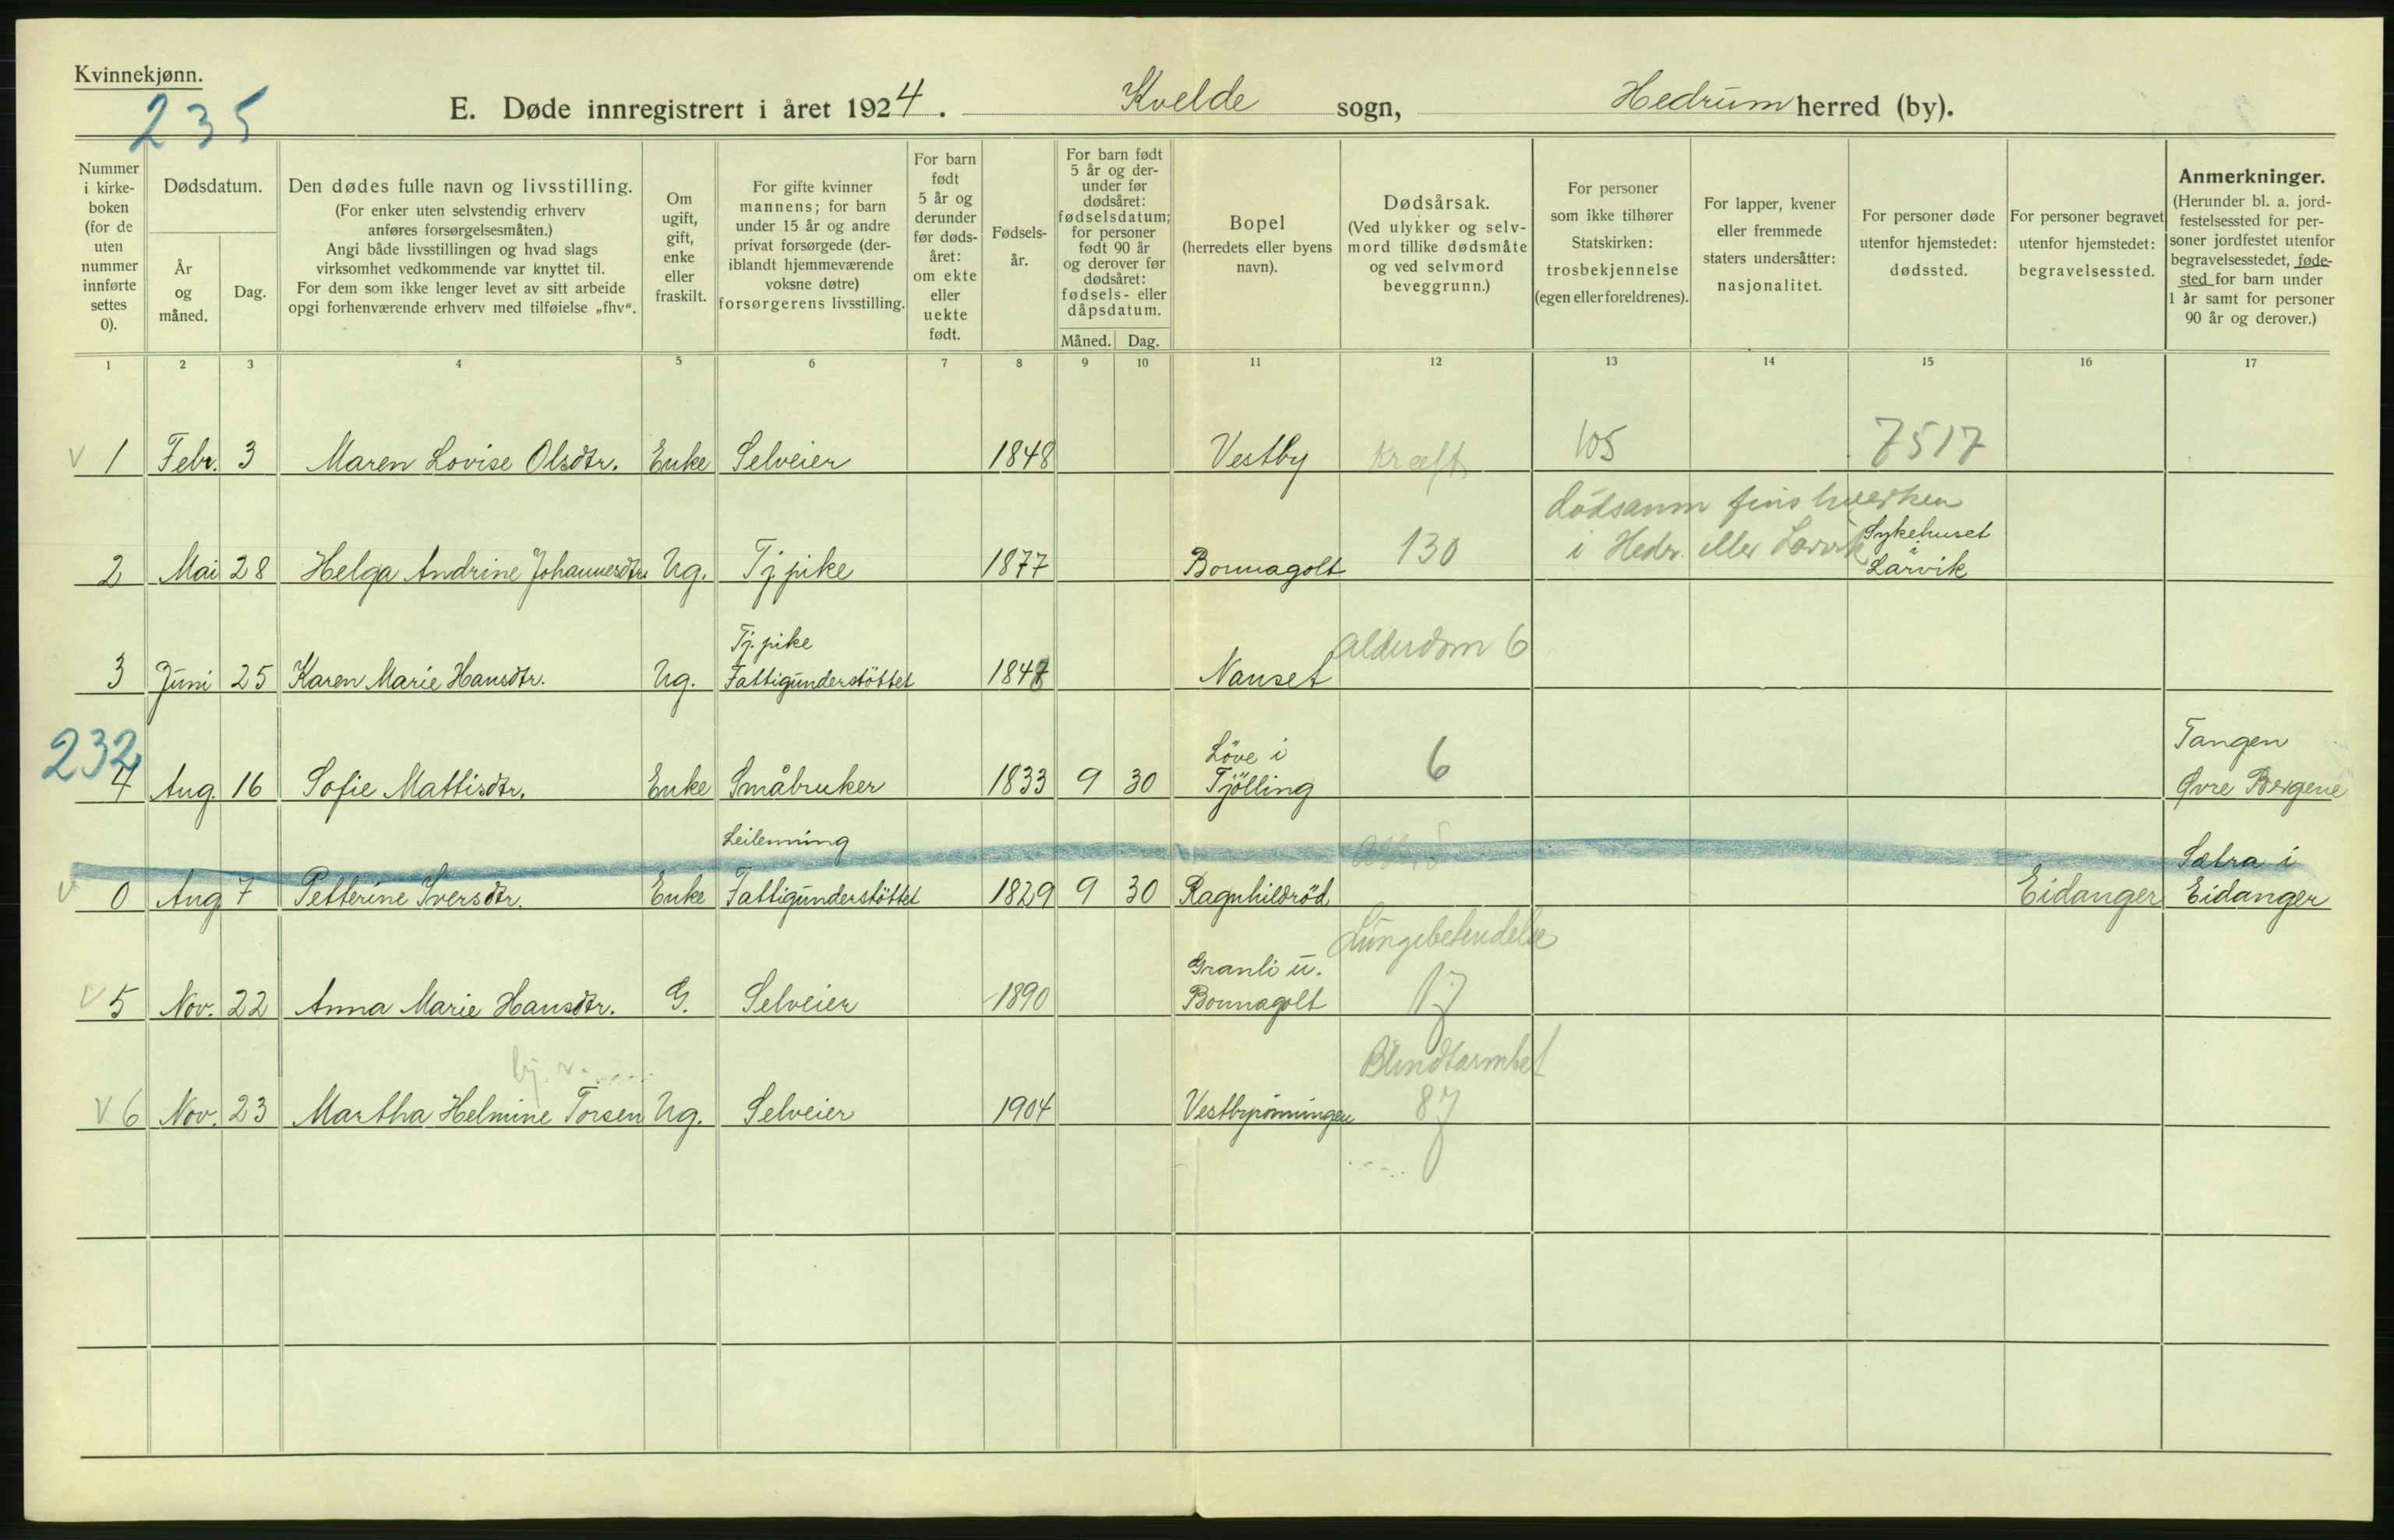 Kvinnekjønn.
235
E. Døde innregistrert i året 1924. Kvelde sogn, Hedrum herred (by).
Nummer i kirke-boken (for de uten nummer innførte settes 0).
Dødsdatum.
År og måned.
Dag.
Den dødes fulle navn og livsstilling.
(For enker uten selvstendig erhverv anføres forsørgelsesmåten.)
Angi både livsstillingen og hvad slags virksomhet vedkommende var knyttet til.
For dem som ikke lenger levet av sitt arbeide opgi forhenværende erhverv med tilføielse „fhv“.
Om ugift, gift, enke eller fraskilt.
For gifte kvinner mannens; for barn under 15 år og andre privat forsørgede (deriblandt hjemmeværende voksne døtre) forsørgerens livsstilling.
For barn født 5 år og derunder før dødsåret: om ekte eller uekte født.
Fødselsår.
For barn født 5 år og derunder før dødsåret: fødselsdatum; for personer født 90 år og derover før dødsåret: fødsels- eller dåpsdatum.
Måned. Dag.
Bopel
(herredets eller byens navn).
Dødsårsak.
(Ved ulykker og selvmord tillike dødsmåte og ved selvmord beveggrunn.)
For personer som ikke tilhører Statskirken: trosbekjennelse (egen eller foreldrenes).
For lapper, kvener eller fremmede staters undersåtter: nasjonalitet.
For personer døde utenfor hjemstedet: dødssted.
For personer begravet utenfor hjemstedet: begravelsessted.
Anmerkninger.
(Herunder bl. a. jordfestelsessted for personer jordfestet utenfor begravelsesstedet, fødested for barn under 1 år samt for personer 90 år og derover.)
1 2 3 4 5 6 7 8 9 10 11 12 13 14 15 16 17
V 1 Febr. 3 Maren Lovise Olsdtr. Enke Selveier 1848 Vestby Kræft 105 7517
dødsanm fins hverken
i Hedr. eller Larvik
2 Mai 28 Helga Andrine Johannesdtr. Ug. Tj. pike 1877 Bonnagolt 130 Sykehuset i Larvik
3 Juni 25 Karen Marie Hansdtr. Ug. Tj. pike Fattigunderstöttet 1847 Nanset Alderdom 6
232
4 Aug. 16 Sofie Mattisdtr. Enke Småbruker 1833 9 30 Löve i Tjölling 6 Tangen Øvre Bergene
V 0 Aug 7 Petterine Iversdtr. Enke Leilenning Fattigunderstöttet 1829 9 30 Ragnhildröd Eidanger Sætra i Eidanger
V 5 Nov. 22 Anna Marie Hansdtr. G. Selveier 1890 Granli u. Bonnagolt Lungebetendelse 17
V 6 Nov. 23 Martha Helmine Torsen Ug. Selveier 1904 Vestbyrönningen Blindtarmbet 87